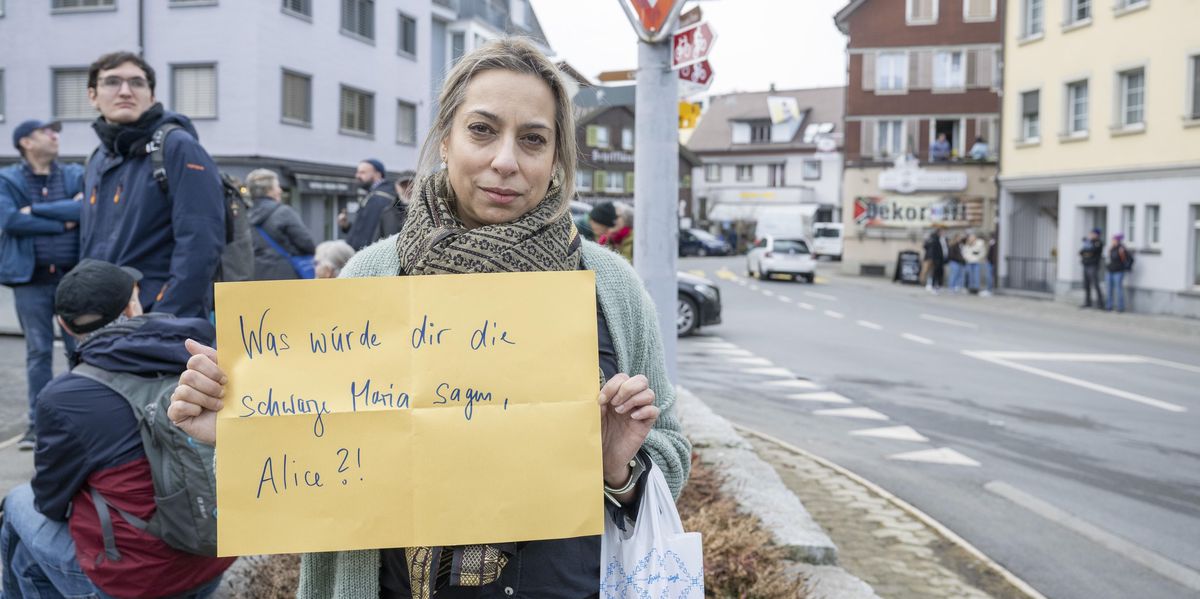 Was würde dir die
schwarze Maria sagen,
Alice?!
Dekor